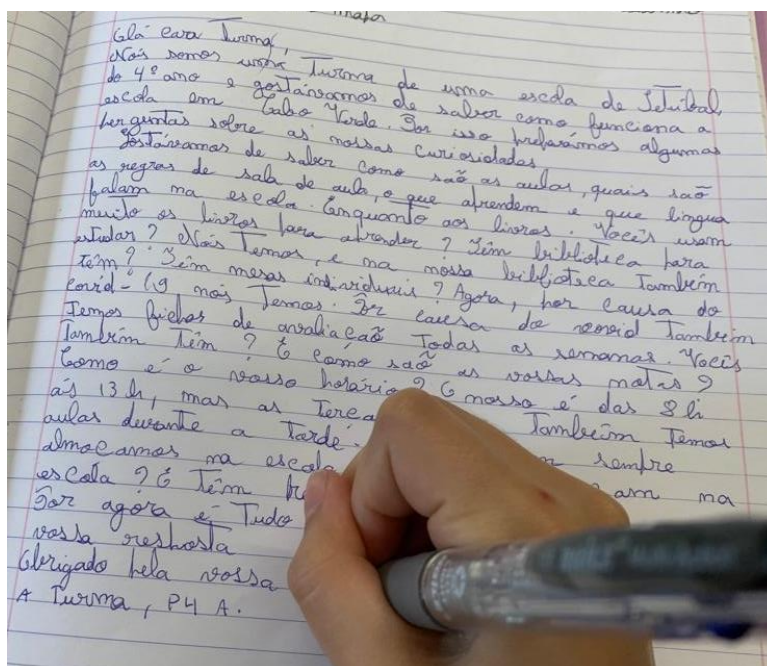 Olá cara Turma,
Nós somos uma Turma de uma escola de Setúbal,
do 4º ano e gostáravamos de saber como funciona a
escola em Cabo Verde. Por isso preparámos algumas
perguntas sobre as nossas curiosidades
Gostáravamos de saber como saõ as aulas, quais saõ
as regras de sala de aula, o que aprendem e que lingua
falam na escola. Enquanto aos livros. Vocês usam
muito os livros para aprender? Têm biblioteca para
estudar? Nós Temos, e na nossa biblioteca Também
têm? Têm mesas individuais? Agora, por causa do
covid-19 nós Temos. Por causa do covid Também
Temos fichas de avaliaçaõ Todas as semanas. Vocês
Também Têm? E como saõ as vossas notas?
Como é o vosso horário? O nosso é das 8h
ás 13h, mas as Terça Também Temos
aulas durante a Tarde. sempre
almoçamos na escola am na
escola? E Têm
Por agora é Tudo
vossa resposta
Obrigado pela vossa
A Turma, P4 A.